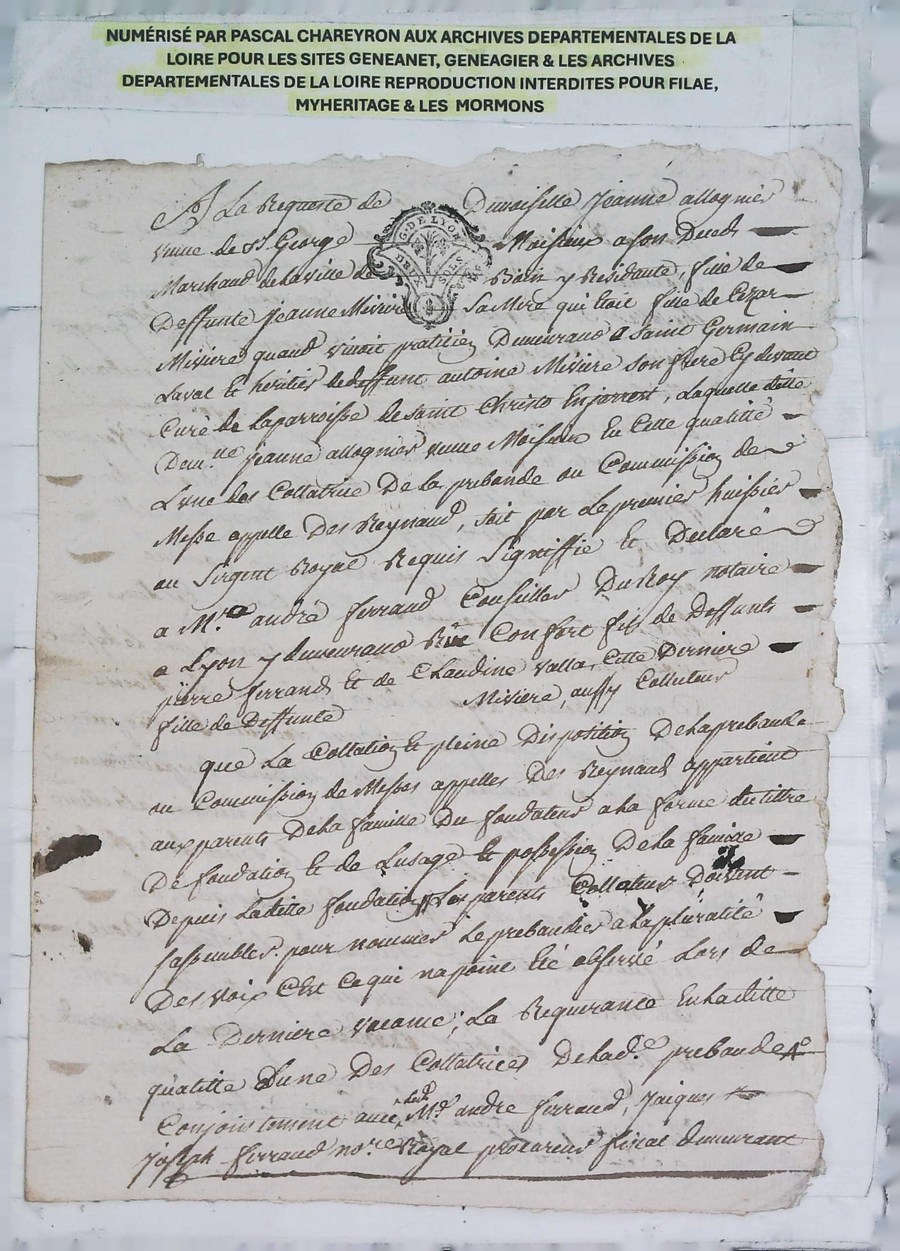 NUMÉRISÉ PAR PASCAL CHAREYRON AUX ARCHIVES DEPARTEMENTALES DE LA
LOIRE POUR LES SITES GENEANET, GENEAGIER & LES ARCHIVES
DEPARTEMENTALES DE LA LOIRE REPRODUCTION INTERDITES POUR FILAE,
MYHERITAGE & LES MORMONS
A La Requeste de Dmoiselle Jeanne allognier
veuve de Sr. George Moisieux a son Deceds
Marchand de la ville de Rian y Residante, fille de
G. DE LYON
DEUX SOLS
Deffunte Jeanne Miviere Sa Mere qui etoit fille de Cezar
Miviere quand vivoit praticien Demeurand a Saint Germain
Laval et heritier de deffunt antoine Miviere son frere Cy devant
Curé de la parroisse de saint Christo En jarrest, Laquelle ditte
Dem.lle Jeanne allognier veuve Moisieux En Cette qualitté
L'une des Collatrice De la prebande ou Commission de
Messe appellé Des Reynaud, soit par Le premier huissier
ou Sergent Royal Requis Signiffié et Declaré
a M.re andré ferrand Conseiller Du Roy notaire
a Lyon y demeurand Rüe Confort fils de Deffunts
pierre ferrand et de Claudine valla, Cette Derniere
fille de Deffunte Miviere, aussy Collateur
que La Collation et pleine Disposition De la prebande
ou Commission de Messes appellés Des Reynaud appartient
aux parents De la famille Du fondateur a la forme du tiltre
De fondation et de L'usage et possession De la famille
Depuis Laditte fondation, Les parents Collateur Doivent
sassembler pour nommer Le prebandier a la pluralité
Des voix C'est Ce qui na point été observé Lors de
La Derniere vacance; La Requerante En laditte
qualitté D'une Des Collatrices De lad.e prebande
Conjointement avec led. M.e andré ferrand, Jacques
Joseph ferrand no.re Royal procureur fiscal demeurant